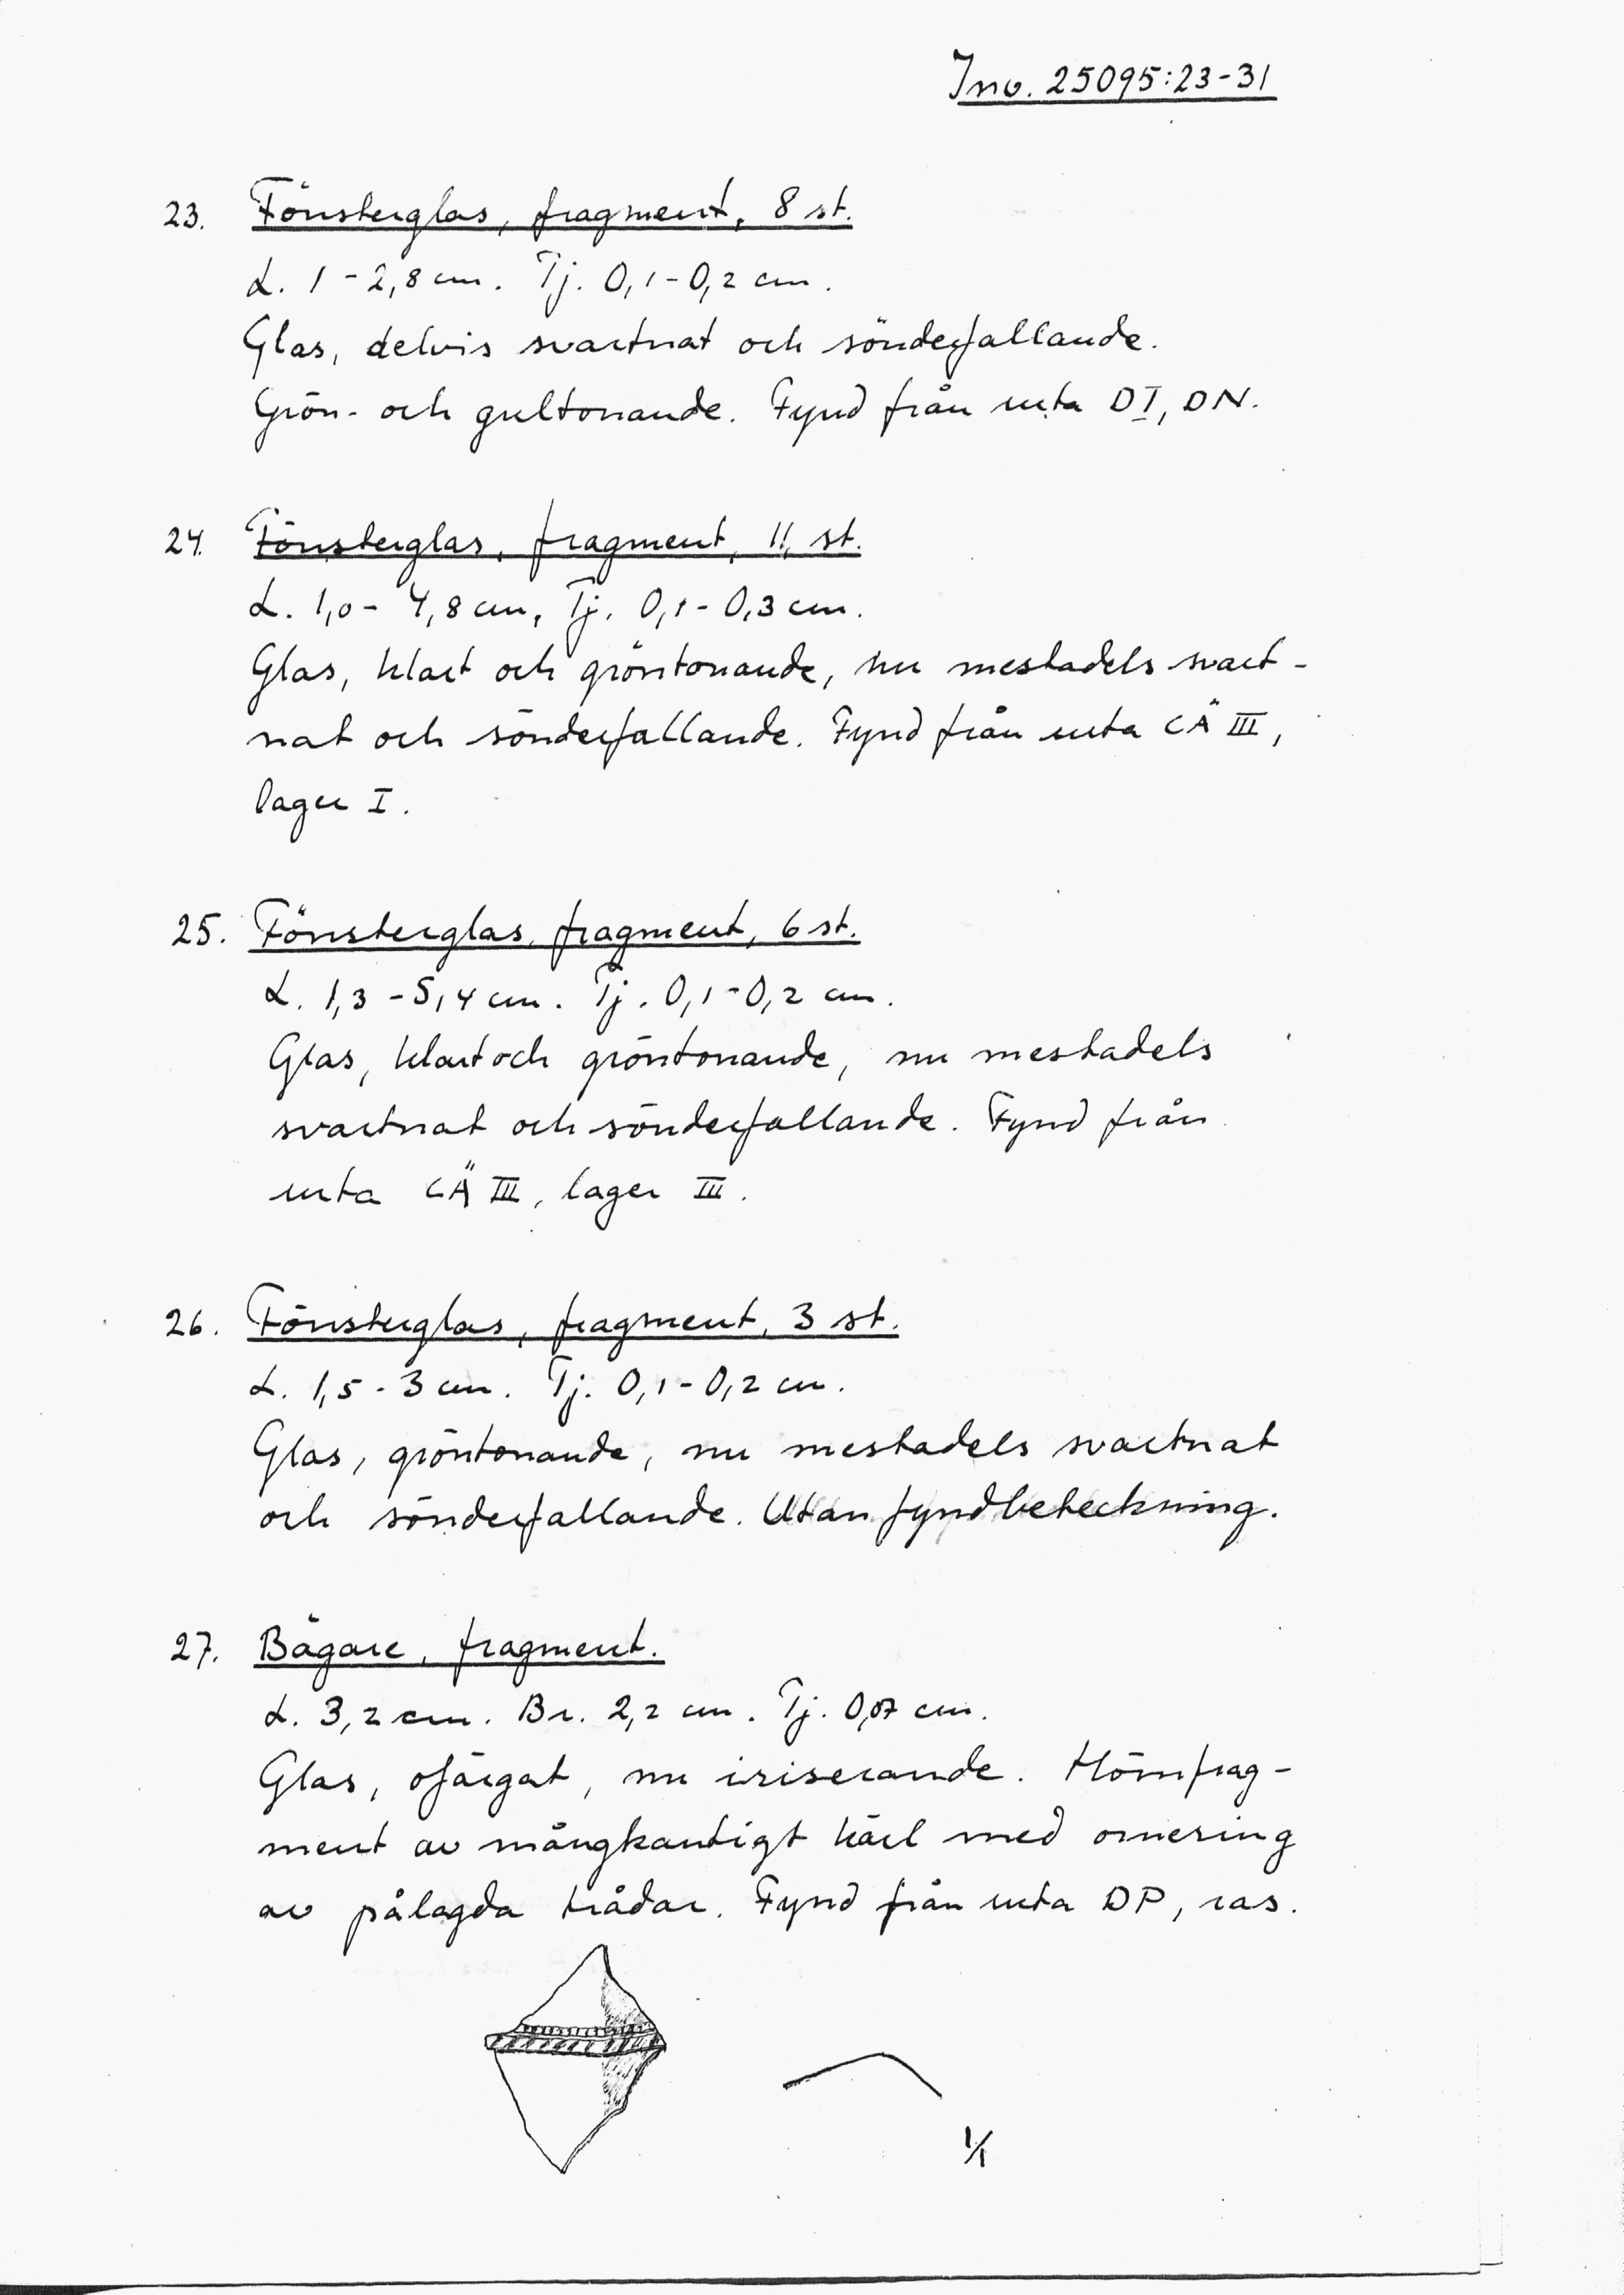 Inv. 25095:23-31
23. Fönsterglas, fragment, 8 st.
L. 1-2,8 cm. Tj. 0,1-0,2 cm.
Glas, delvis svartnat och sönderfallande.
Grön- och gultonande. Fynd från ruta DI, DN.
24. Fönsterglas, fragment, 11 st.
L. 1,0-4,8 cm, Tj. 0,1-0,3 cm.
Glas, klart och gröntonande, nu mestadels svart-
nat och sönderfallande. Fynd från ruta CÄ III,
lager I.
25. Fönsterglas, fragment, 6 st.
L. 1,3-5,4 cm. Tj. 0,1-0,2 cm.
Glas, klart och gröntonande, nu mestadels
svartnat och sönderfallande. Fynd från
ruta CÄ III, lager III.
26. Fönsterglas, fragment, 3 st.
L. 1,5-3 cm. Tj. 0,1-0,2 cm.
Glas, gröntonande, nu mestadels svartnat
och sönderfallande. Utan fyndbeteckning.
27. Bägare, fragment.
L. 3,2 cm. Br. 2,2 cm. Tj. 0,07 cm.
Glas, ofärgat, nu iriserande. Hörnfrag-
ment av mångkantigt kärl med ornering
av pålagda trådar. Fynd från ruta DP, ras.
1/1